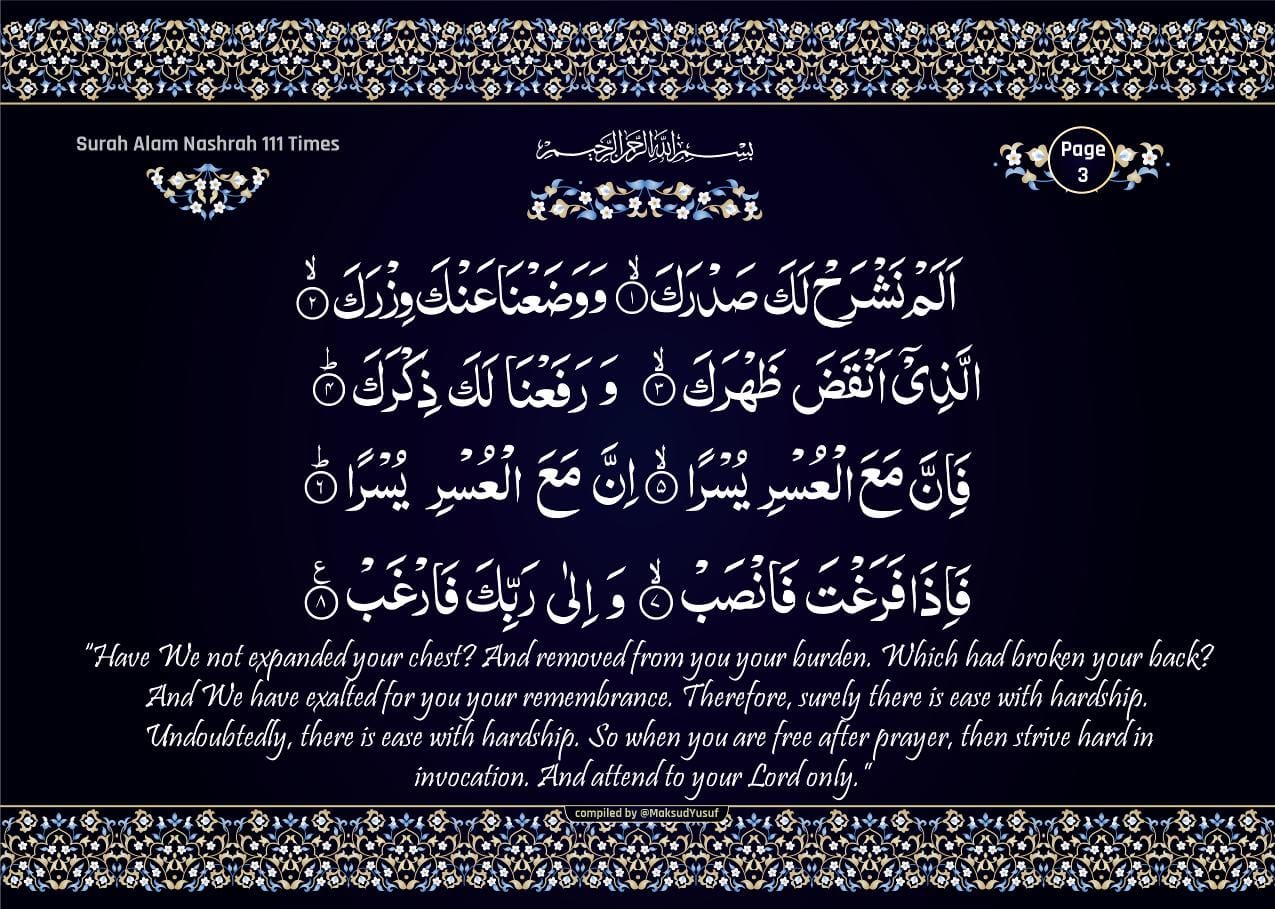 Surah Alam Nashrah 111 Times
بِسْمِ اللهِ الرَّحْمٰنِ الرَّحِيْمِ
Page
3
اَلَمْ نَشْرَحْ لَكَ صَدْرَكَ ۙ﴿۱﴾ وَوَضَعْنَا عَنْكَ وِزْرَكَ ۙ﴿۲﴾
الَّذِىْۤ اَنْقَضَ ظَهْرَكَ ۙ﴿۳﴾ وَ رَفَعْنَا لَكَ ذِكْرَكَ ؕ﴿۴﴾
فَاِنَّ مَعَ الْعُسْرِ يُسْرًا ۙ﴿۵﴾ اِنَّ مَعَ الْعُسْرِ يُسْرًا ؕ﴿۶﴾
فَاِذَا فَرَغْتَ فَانْصَبْ ۙ﴿۷﴾ وَ اِلٰى رَبِّكَ فَارْغَبْ ﴿۸﴾ ع
“Have We not expanded your chest? And removed from you your burden. Which had broken your back?
And We have exalted for you your remembrance. Therefore, surely there is ease with hardship.
Undoubtedly, there is ease with hardship. So when you are free after prayer, then strive hard in
invocation. And attend to your Lord only.”
compiled by @MaksudYusuf